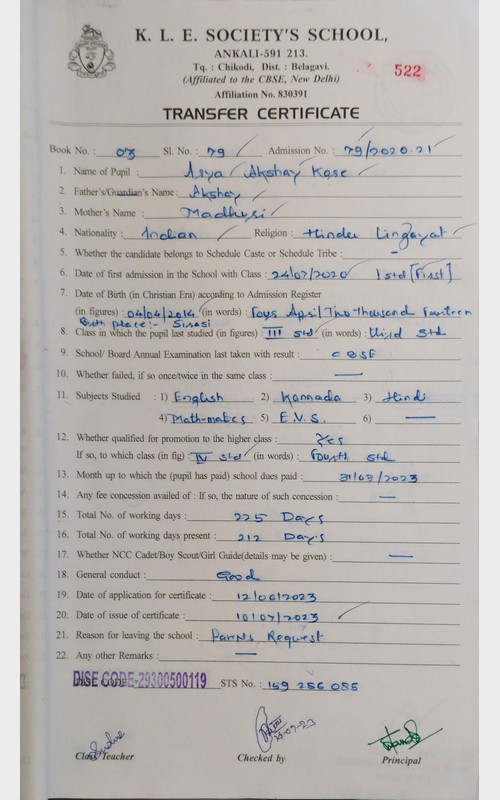 K. L. E. SOCIETY'S SCHOOL,
ANKALI-591 213.
Tq. : Chikodi, Dist. : Belagavi.
(Affiliated to the CBSE, New Delhi)
522
Affiliation No. 830391
TRANSFER CERTIFICATE
Book No. : 03 Sl. No. : 79 Admission No. : 79/2020-21
1. Name of Pupil : Akshay Kase
2. Father's/Guardian's Name : Akshay
3. Mother's Name :
4. Nationality : Indian Religion : Hindu Lingayat
5. Whether the candidate belongs to Schedule Caste or Schedule Tribe : -
6. Date of first admission in the School with Class : 24/07/2020 I std [First]
7. Date of Birth (in Christian Era) according to Admission Register
(in figures) : 04/04/2014 (in words) : April Two thousand Fourteen
Birth place :-
8. Class in which the pupil last studied (in figures) : III std (in words) : Std
9. School/ Board Annual Examination last taken with result : CBSE
10. Whether failed, if so once/twice in the same class : —
11. Subjects Studied : 1) English 2) Kannada 3) Hindi
4) Mathematics 5) E.V.S. 6) —
12. Whether qualified for promotion to the higher class : Yes
If so, to which class (in fig) : IV std (in words) : Fourth std
13. Month up to which the (pupil has paid) school dues paid : 31/03/2023
14. Any fee concession availed of : If so, the nature of such concession : —
15. Total No. of working days : 225 Days
16. Total No. of working days present : 212 Days
17. Whether NCC Cadet/Boy Scout/Girl Guide(details may be given) : —
18. General conduct : Good
19. Date of application for certificate : 12/06/2023
20. Date of issue of certificate : 10/07/2023
21. Reason for leaving the school : Request
22. Any other Remarks : —
DISE CODE-29300500119 STS No. : 159 256 085
Class Teacher Checked by Principal